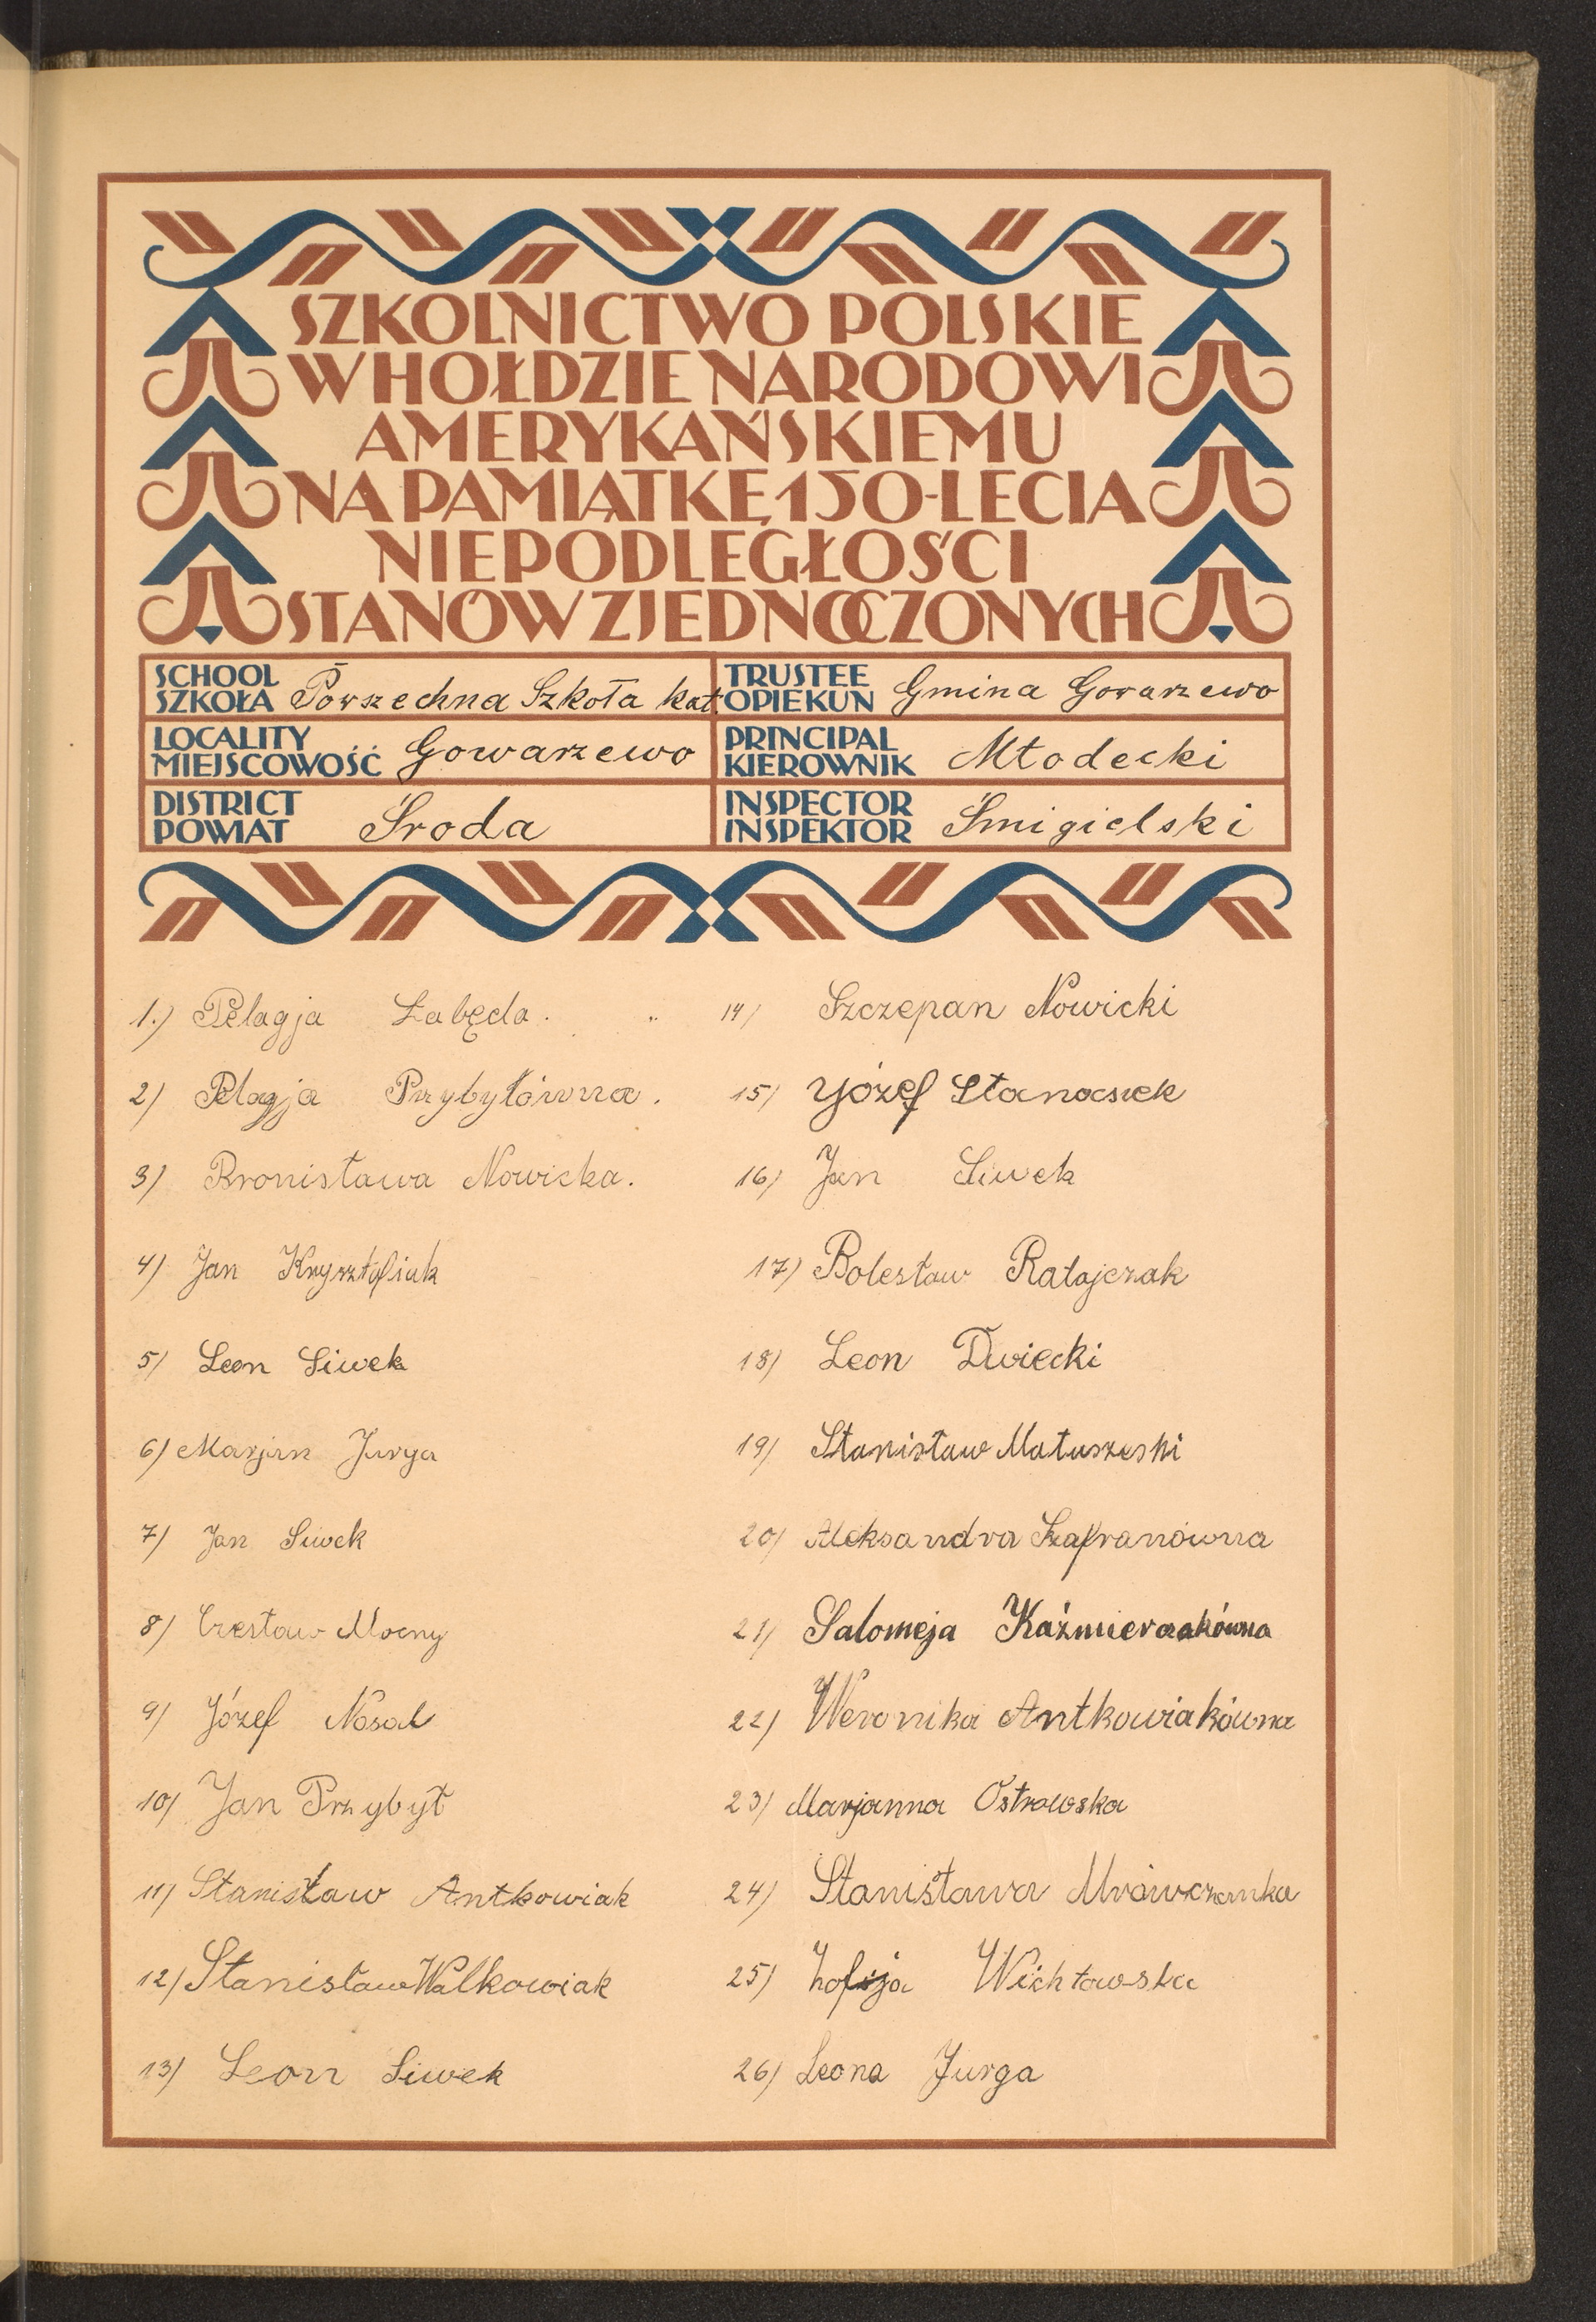 SZKOLNICTWO POLSKIE
W HOŁDZIE NARODOWI
AMERYKAŃSKIEMU
NA PAMIĄTKĘ 150-LECIA
NIEPODLEGŁOŚCI
STANÓW ZJEDNOCZONYCH
SCHOOL
SZKOŁA Powszechna Szkoła kat.
TRUSTEE
OPIEKUN Gmina Gowarzewo
LOCALITY
MIEJSCOWOŚĆ Gowarzewo
PRINCIPAL
KIEROWNIK Młodecki
DISTRICT
POWIAT Środa
INSPECTOR
INSPEKTOR Śmigielski
1.) Pelagja Łabęda.
2) Pelagja Przybyłówna.
3) Bronisława Nowicka.
4) Jan Krysztofiak
5) Leon Siwek
6) Marjan Jurga
7) Jan Siwek
8) Czesław Mocny
9) Józef Nosal
10) Jan Przybył
11) Stanisław Antkowiak
12) Stanisław Walkowiak
13) Leon Siwek
14) Szczepan Nowicki
15) Józef
16) Jan Siwek
17) Bolesław Ratajczak
18) Leon Dwiecki
19) Stanisław Matuszeski
20) Aleksandra Szafranówna
21) Salomeja Kaźmierczakówna
22) Weronika Antkowiakówna
23) Marjanna Ostrowska
24) Stanisława Mrówczanka
25) Zofja Wichłowska
26) Leona Jurga